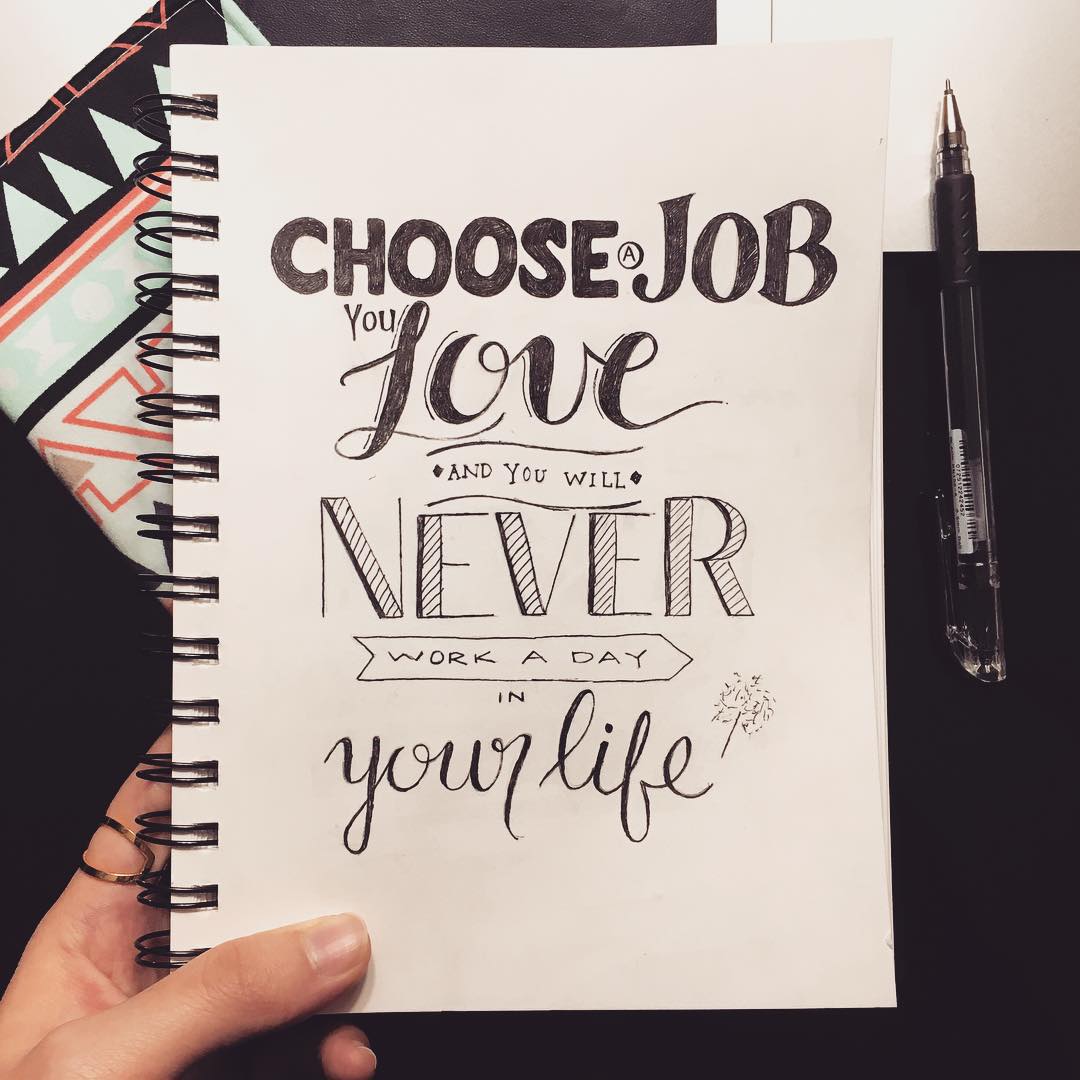 CHOOSE A JOB
You Love
AND YOU WILL
NEVER
WORK A DAY
IN
your life